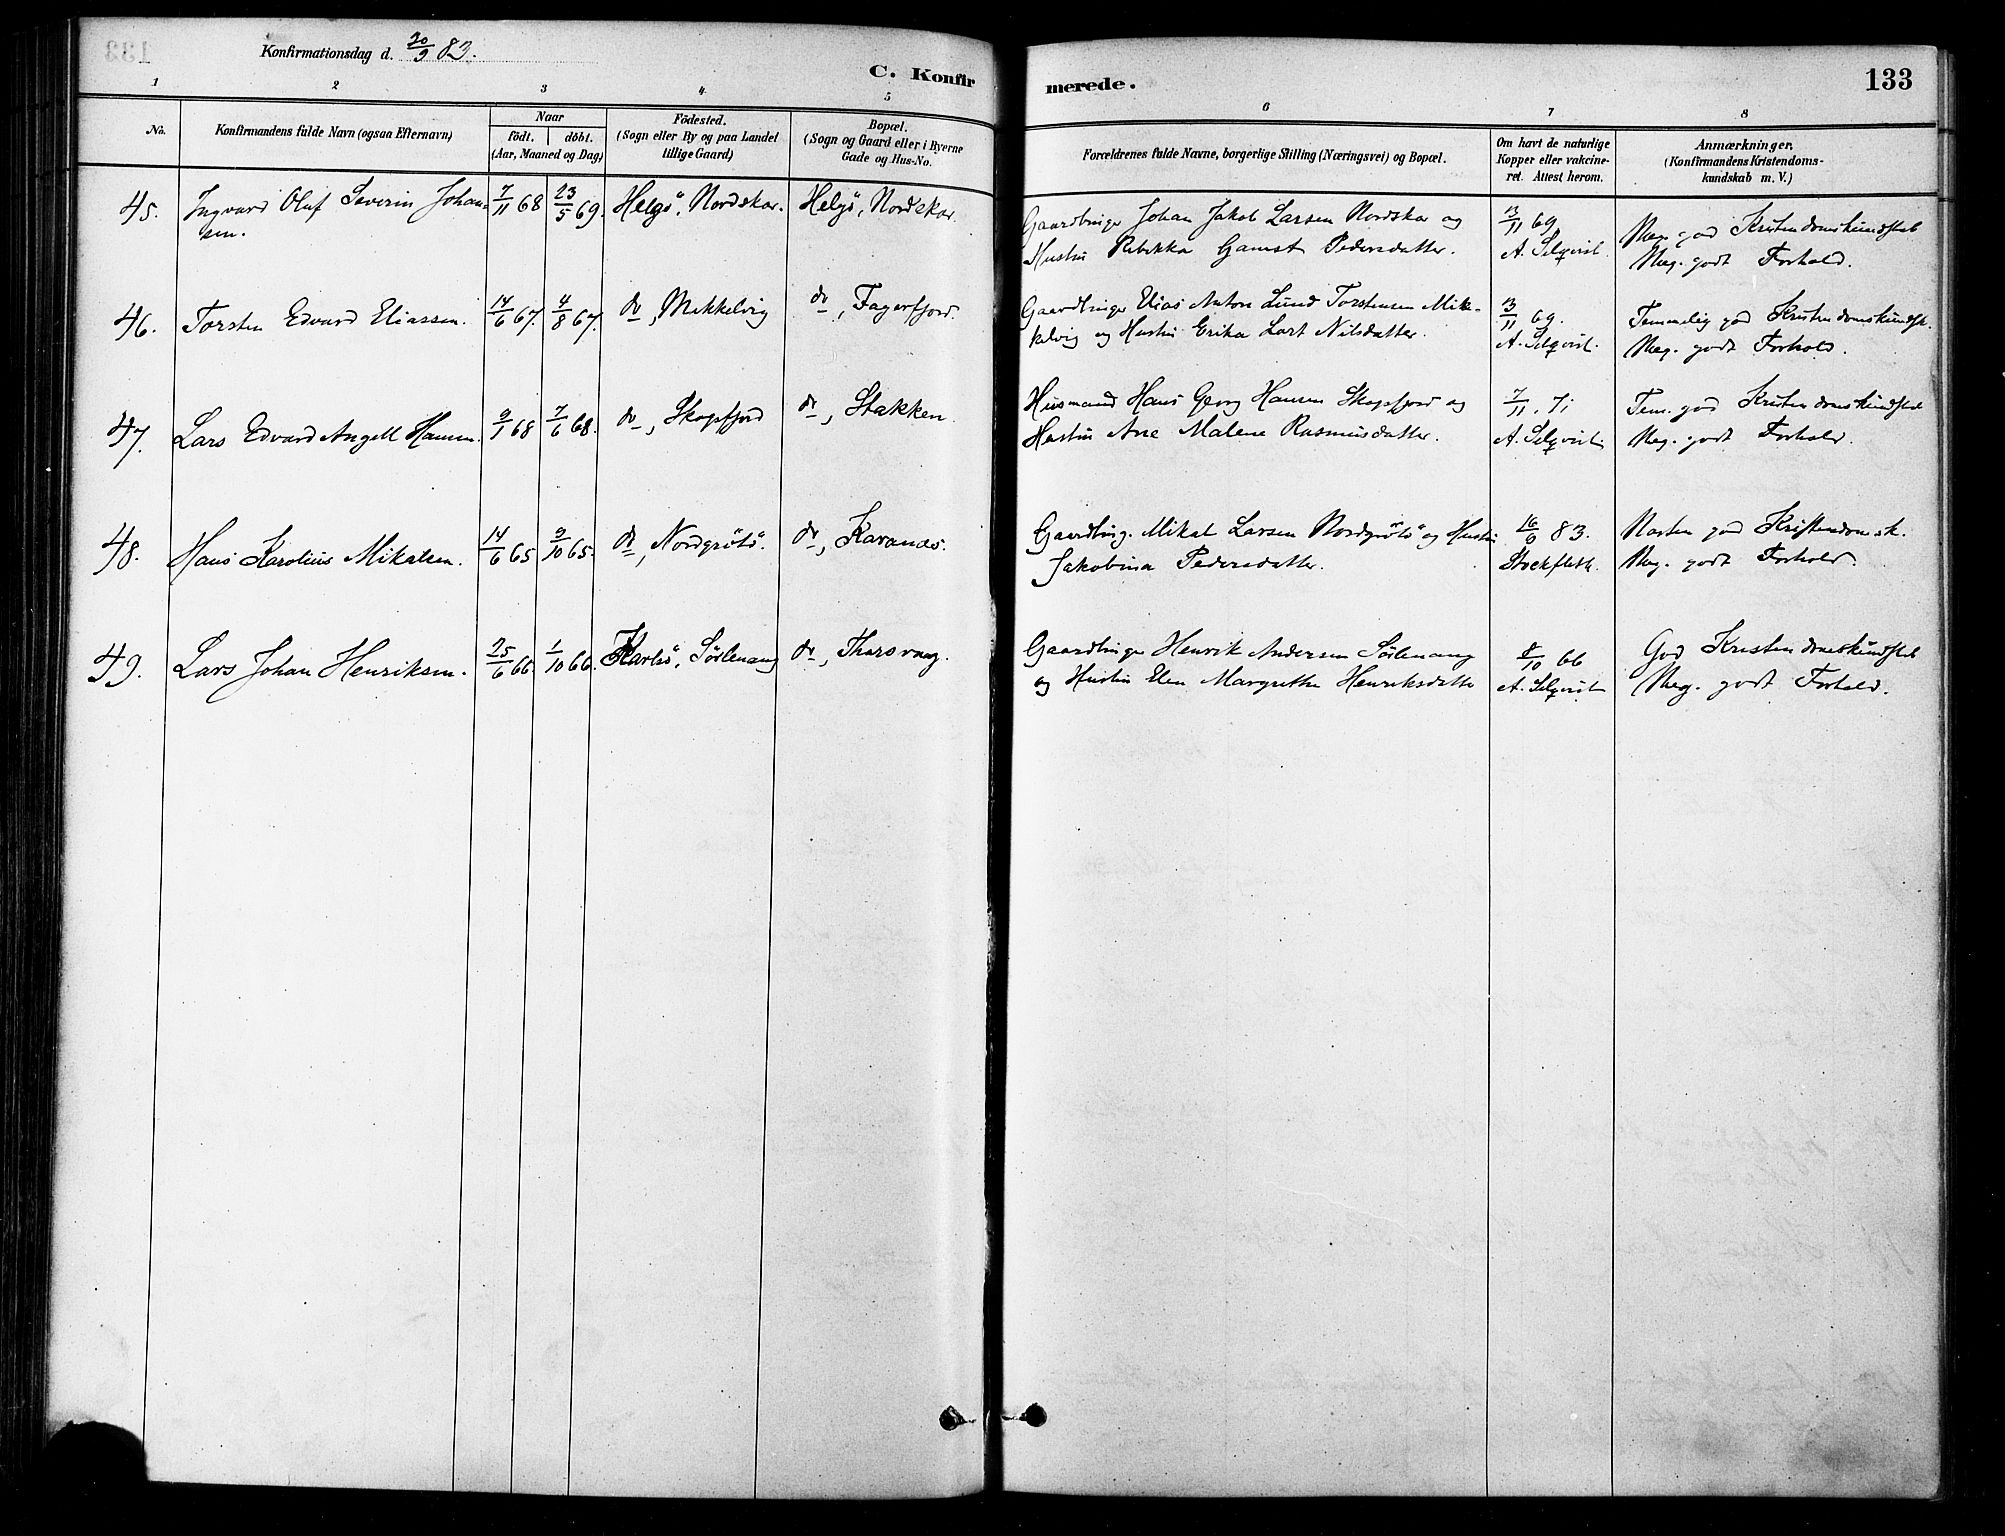 Konfirmationsdag d. 30/9 83.
C. Konfir
merede.
133
1
2
3
4
5
6
7
8
No.
Konfirmandens fulde Navn (ogsaa Efternavn)
Naar
födt.
döbt.
(Aar, Maaned og Dag)
Födested.
(Sogn eller By og paa Landet
tillige Gaard)
Bopæl.
(Sogn og Gaard eller i Byerne
Gade og Hus-No.
Forældrenes fulde Navne, borgerlige Stilling (Næringsvei) og Bopæl.
Om havt de naturlige
Kopper eller vakcine-
ret. Attest herom.
Anmærkninger.
(Konfirmandens Kristendoms-
kundskab m. V.)
45. Ingvard Oluf Severin Johan- 7/11 68 23/5 69. Helgö, Nordskar. Helgö, Nordskar. Gaardbruger Johan Jakob Larsen Nordskar og 13/11 69 Meg. god Kristendomskundskab
sen. Hustru Rebekka Gamst Pedersdatter. A. Selqvist. Meg. godt Forhold.
46. Torsten Edvard Eliassen. 14/6 67. 4/8 67. do, Mikkelvig do, Fagerfjord. Gaardbruger Elias Anton Lund Torstensen Mik- 13/11 69. Temmelig god Kristendomskundsk.
kelvig og Hustru Erika Lart Nilsdatter. A. Selqvist. Meg. godt Forhold.
47. Lars Edvard Angell Hansen. 9/1 68 7/6 68. do, Skogsfjord do, Stakken. Husmand Hans Georg Hansen Skogsfjord og 7/11. 71 Tem. god Kristendomskundskab
Hustru Ane Malene Rasmusdatter. A. Selqvist. Meg. godt Forhold.
48. Hans Karolius Mikalsen. 14/6 65 9/10 65. do, Nordgrötö. do, Kavanes. Gaardbrug. Mikal Larsen Nordgrötö og Hustru 16/6 83. Næsten god Kristendomsk.
Jakobina Pedersdatter. Stockfleth. Meg. godt Forhold.
49. Lars Johan Henriksen. 25/6 66 1/10 66. Karlsö, Sörlenang do, Thorsvaag. Gaardbruger Henrik Andersen Sörlenang 8/10 66 God Kristendomskundskab
og Hustru Elen Margrethe Henriksdatter A. Selqvist. Meg. godt Forhold.